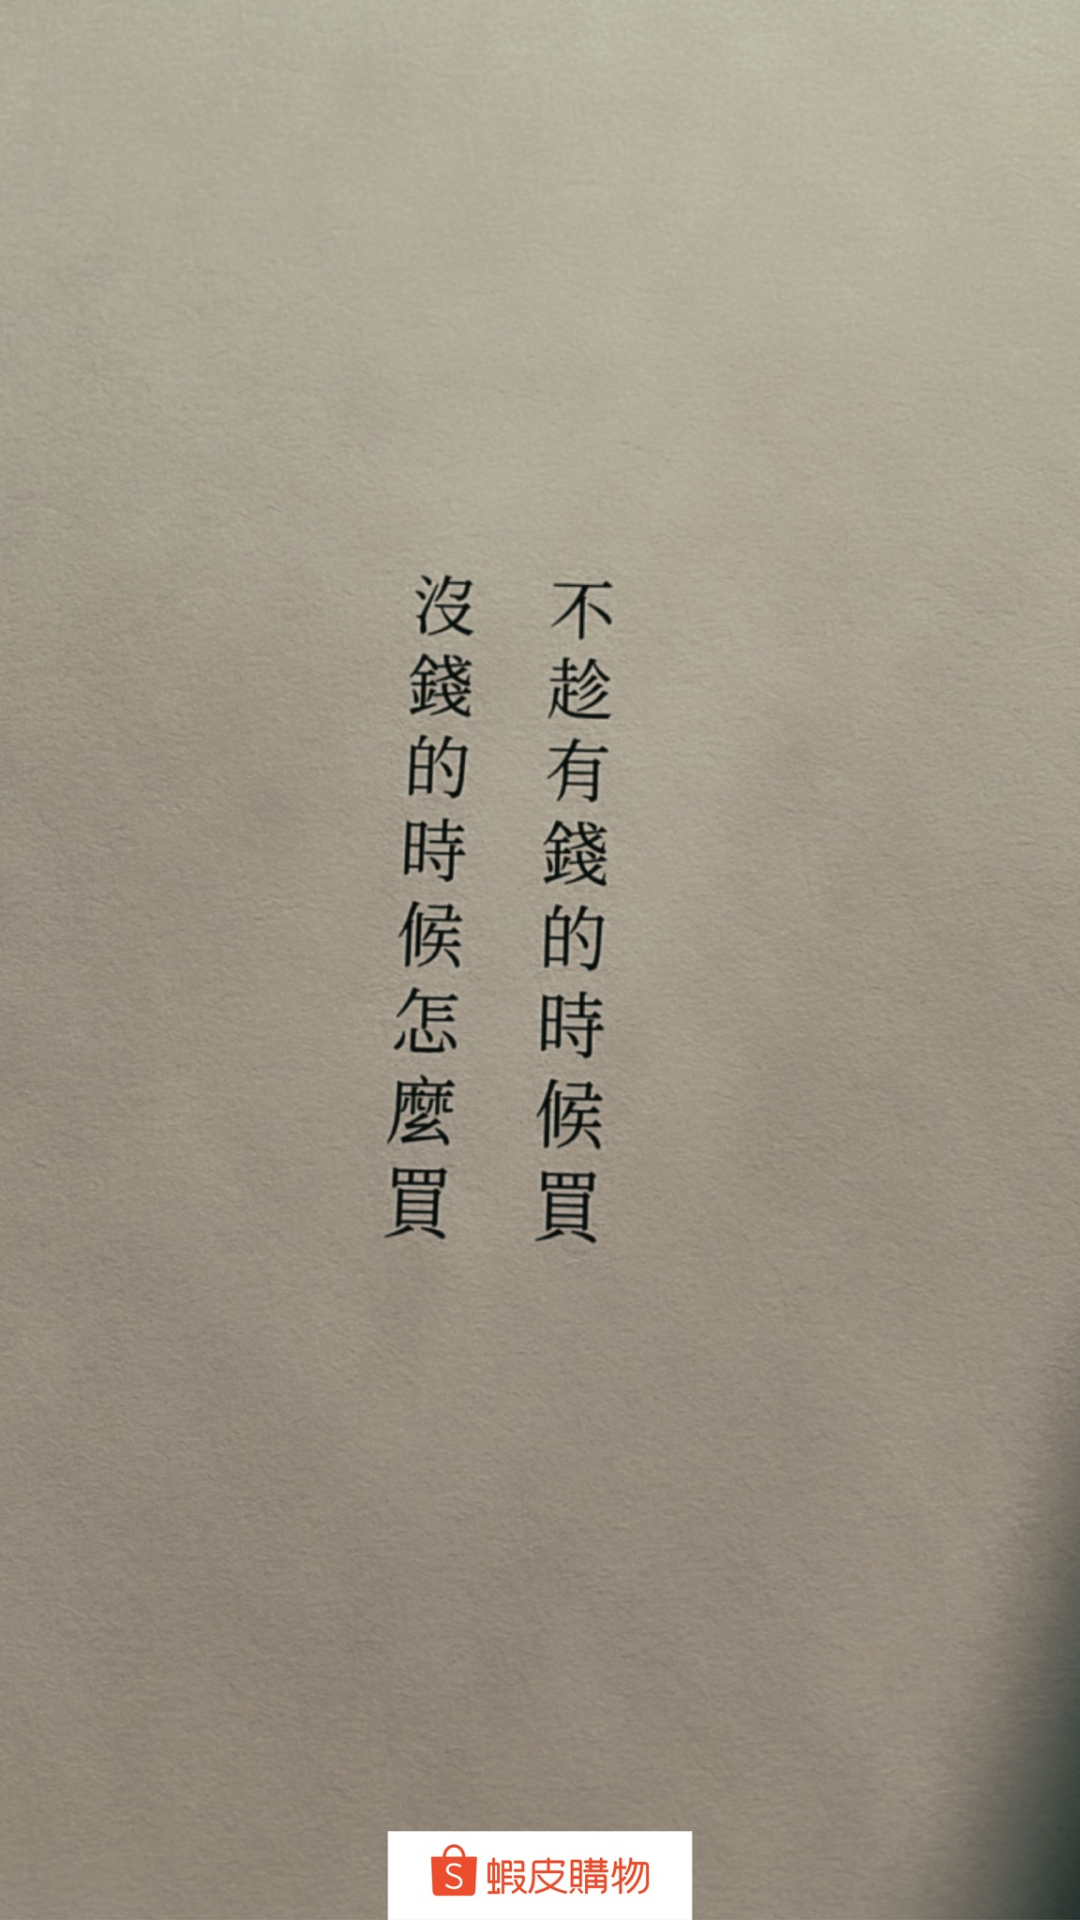 不趁有錢的時候買
沒錢的時候怎麼買
S 蝦皮購物